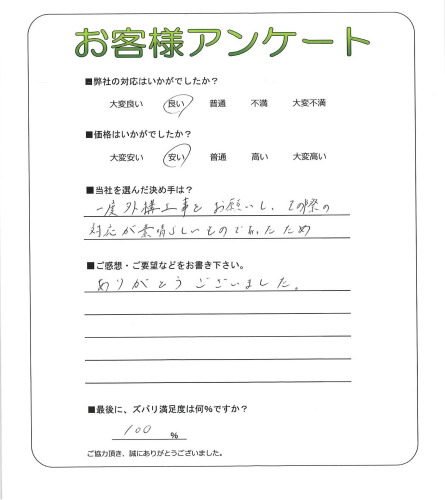 お客様アンケート
■弊社の対応はいかがでしたか?
大変良い 良い 普通 不満 大変不満
■価格はいかがでしたか?
大変安い 安い 普通 高い 大変高い
■当社を選んだ決め手は?
一度外構工事をお願いし、その際の
対応が素晴らしいものであったため
■ご感想・ご要望などをお書き下さい。
ありがとうございました。
■最後に、ズバリ満足度は何%ですか?
100 %
ご協力頂き、誠にありがとうございました。